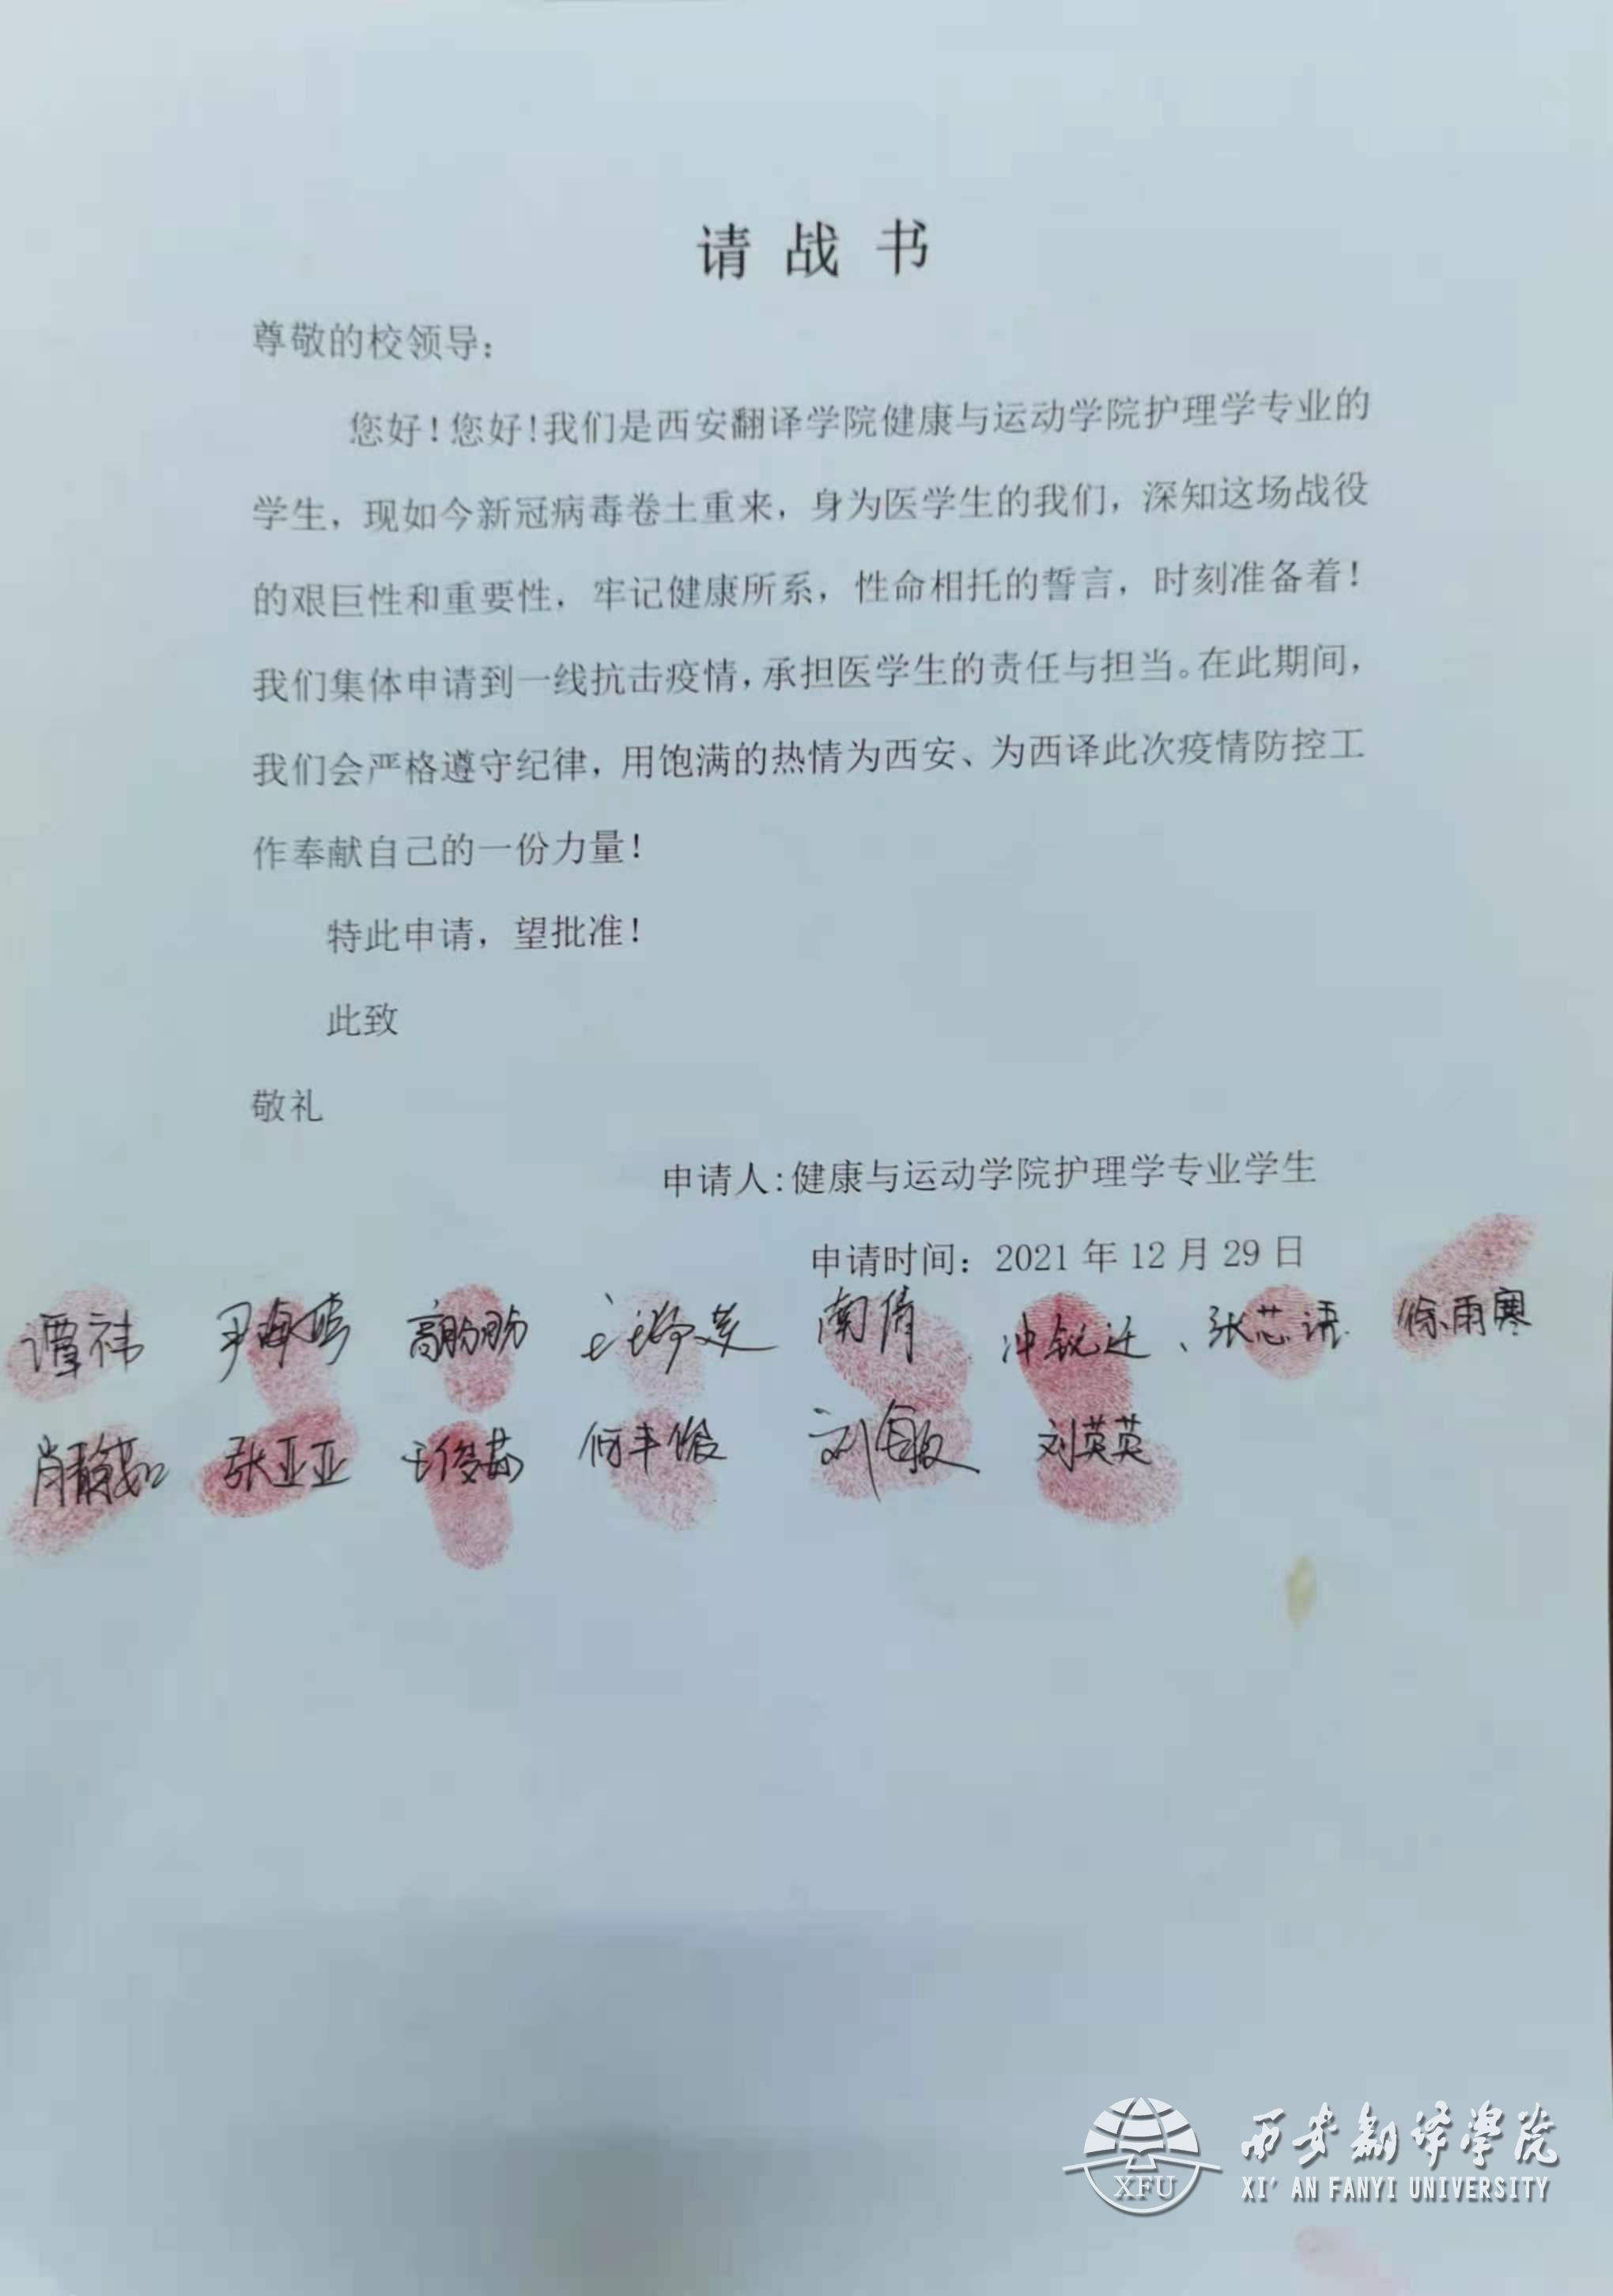 请战书
尊敬的校领导：
您好！您好！我们是西安翻译学院健康与运动学院护理学专业的
学生，现如今新冠病毒卷土重来，身为医学生的我们，深知这场战役
的艰巨性和重要性，牢记健康所系，性命相托的誓言，时刻准备着！
我们集体申请到一线抗击疫情，承担医学生的责任与担当。在此期间，
我们会严格遵守纪律，用饱满的热情为西安、为西译此次疫情防控工
作奉献自己的一份力量！
特此申请，望批准！
此致
敬礼
申请人：健康与运动学院护理学专业学生
申请时间：2021 年 12 月 29 日
谭祎 高盼盼 南倩 冲锐迁、张芯语 徐雨寒
张亚亚 刘敏 刘英英
XFU
西安翻译学院
XI' AN FANYI UNIVERSITY